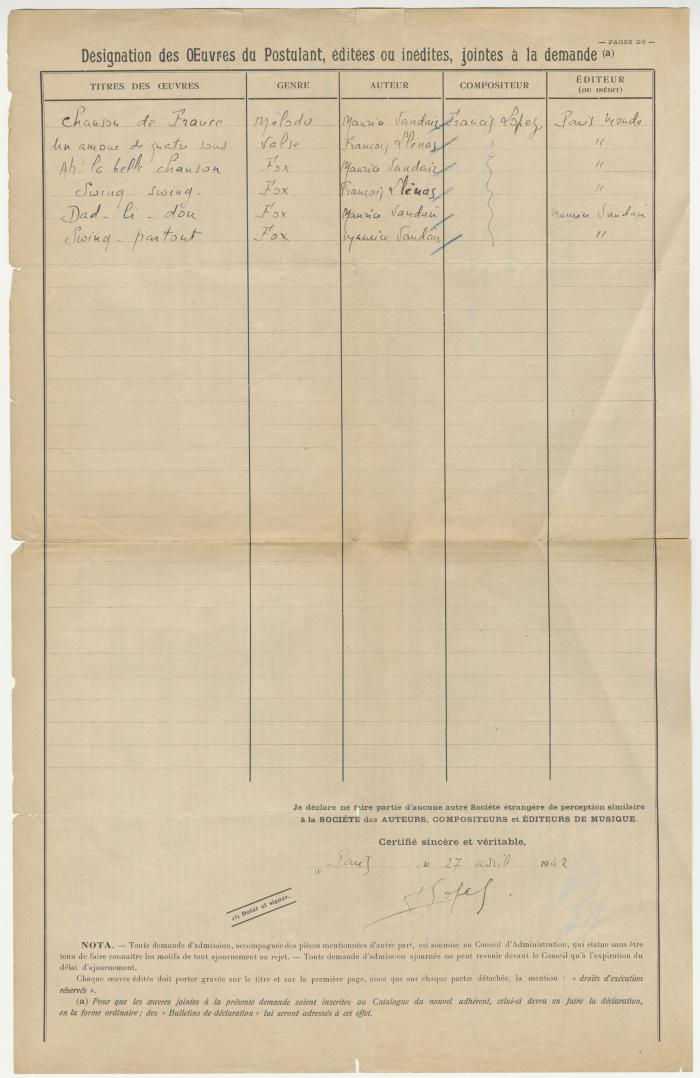 — PAGES 2-3 —
Désignation des Œuvres du Postulant, éditées ou inédites, jointes à la demande (a)
TITRES DES ŒUVRES GENRE AUTEUR COMPOSITEUR ÉDITEUR
(OU INÉDIT)
Chanson de France Mélodie Maurice Vandair Francis Lopez Paris Monde
Un amour de quatre sous Valse François Llenas "
Ah! la belle chanson Fox Maurice Vandair "
Swing - swing. Fox François Llenas "
Dad - li - dou Fox Maurice Vandair Maurice Vandair
Swing - partout Fox Maurice Vandair "
Je déclare ne faire partie d'aucune autre Société étrangère de perception similaire
à la SOCIÉTÉ des AUTEURS, COMPOSITEURS et ÉDITEURS DE MUSIQUE.
Certifié sincère et véritable,
Paris, le 27 avril 1942
F Lopez.
(1) Dater et signer.
NOTA. — Toute demande d'admission, accompagnée des pièces mentionnées d'autre part, est soumise au Conseil d'Administration, qui statue sans être
tenu de faire connaître les motifs de tout ajournement ou rejet. — Toute demande d'admission ajournée ne peut revenir devant le Conseil qu'à l'expiration du
délai d'ajournement.
Chaque œuvre éditée doit porter gravée sur le titre et sur la première page, ainsi que sur chaque partie détachée, la mention : « droits d'exécution
réservés ».
(a) Pour que les œuvres jointes à la présente demande soient inscrites au Catalogue du nouvel adhérent, celui-ci devra en faire la déclaration,
en la forme ordinaire ; des « Bulletins de déclaration » lui seront adressés à cet effet.